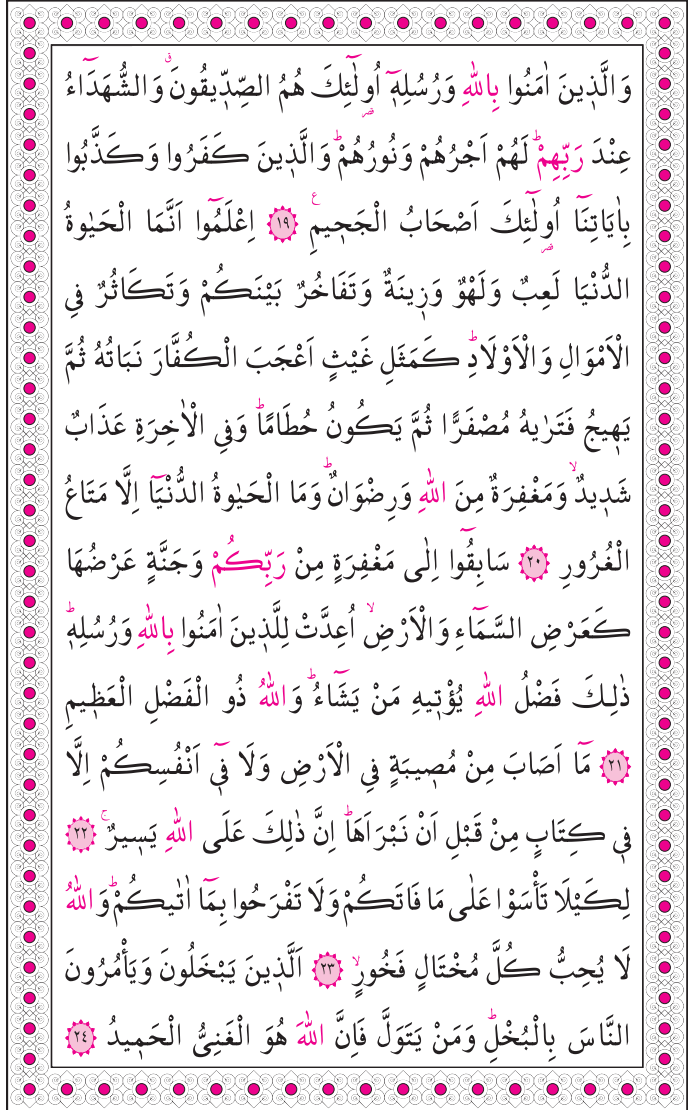 وَالَّذ۪ينَ اٰمَنُوا بِاللّٰهِ وَرُسُلِه۪ٓ اُو۬لٰٓئِكَ هُمُ الصِّدّ۪يقُونَۗ وَالشُّهَدَٓاءُ
عِنْدَ رَبِّهِمْۜ لَهُمْ اَجْرُهُمْ وَنُورُهُمْۜ وَالَّذ۪ينَ كَفَرُوا وَكَذَّبُوا
بِاٰيَاتِنَٓا اُو۬لٰٓئِكَ اَصْحَابُ الْجَح۪يمِ۟ ﴿١٩﴾ اِعْلَمُٓوا اَنَّمَا الْحَيٰوةُ
الدُّنْيَا لَعِبٌ وَلَهْوٌ وَز۪ينَةٌ وَتَفَاخُرٌ بَيْنَكُمْ وَتَكَاثُرٌ فِي
الْاَمْوَالِ وَالْاَوْلَادِۜ كَمَثَلِ غَيْثٍ اَعْجَبَ الْكُفَّارَ نَبَاتُهُ ثُمَّ
يَه۪يجُ فَتَرٰيهُ مُصْفَرًّا ثُمَّ يَكُونُ حُطَامًاۜ وَفِي الْاٰخِرَةِ عَذَابٌ
شَد۪يدٌۙ وَمَغْفِرَةٌ مِنَ اللّٰهِ وَرِضْوَانٌۜ وَمَا الْحَيٰوةُ الدُّنْيَٓا اِلَّا مَتَاعُ
الْغُرُورِ ﴿٢٠﴾ سَابِقُٓوا اِلٰى مَغْفِرَةٍ مِنْ رَبِّكُمْ وَجَنَّةٍ عَرْضُهَا
كَعَرْضِ السَّمَٓاءِ وَالْاَرْضِۙ اُعِدَّتْ لِلَّذ۪ينَ اٰمَنُوا بِاللّٰهِ وَرُسُلِه۪ۜ
ذٰلِكَ فَضْلُ اللّٰهِ يُؤْت۪يهِ مَنْ يَشَٓاءُۜ وَاللّٰهُ ذُو الْفَضْلِ الْعَظ۪يمِ
﴿٢١﴾ مَٓا اَصَابَ مِنْ مُص۪يبَةٍ فِي الْاَرْضِ وَلَا ف۪ٓي اَنْفُسِكُمْ اِلَّا
ف۪ي كِتَابٍ مِنْ قَبْلِ اَنْ نَبْرَاَهَاۜ اِنَّ ذٰلِكَ عَلَى اللّٰهِ يَس۪يرٌۚ ﴿٢٢﴾
لِكَيْلَا تَأْسَوْا عَلٰى مَا فَاتَكُمْ وَلَا تَفْرَحُوا بِمَٓا اٰتٰيكُمْۜ وَاللّٰهُ
لَا يُحِبُّ كُلَّ مُخْتَالٍ فَخُورٍۙ ﴿٢٣﴾ اَلَّذ۪ينَ يَبْخَلُونَ وَيَأْمُرُونَ
النَّاسَ بِالْبُخْلِۜ وَمَنْ يَتَوَلَّ فَاِنَّ اللّٰهَ هُوَ الْغَنِيُّ الْحَم۪يدُ ﴿٢٤﴾